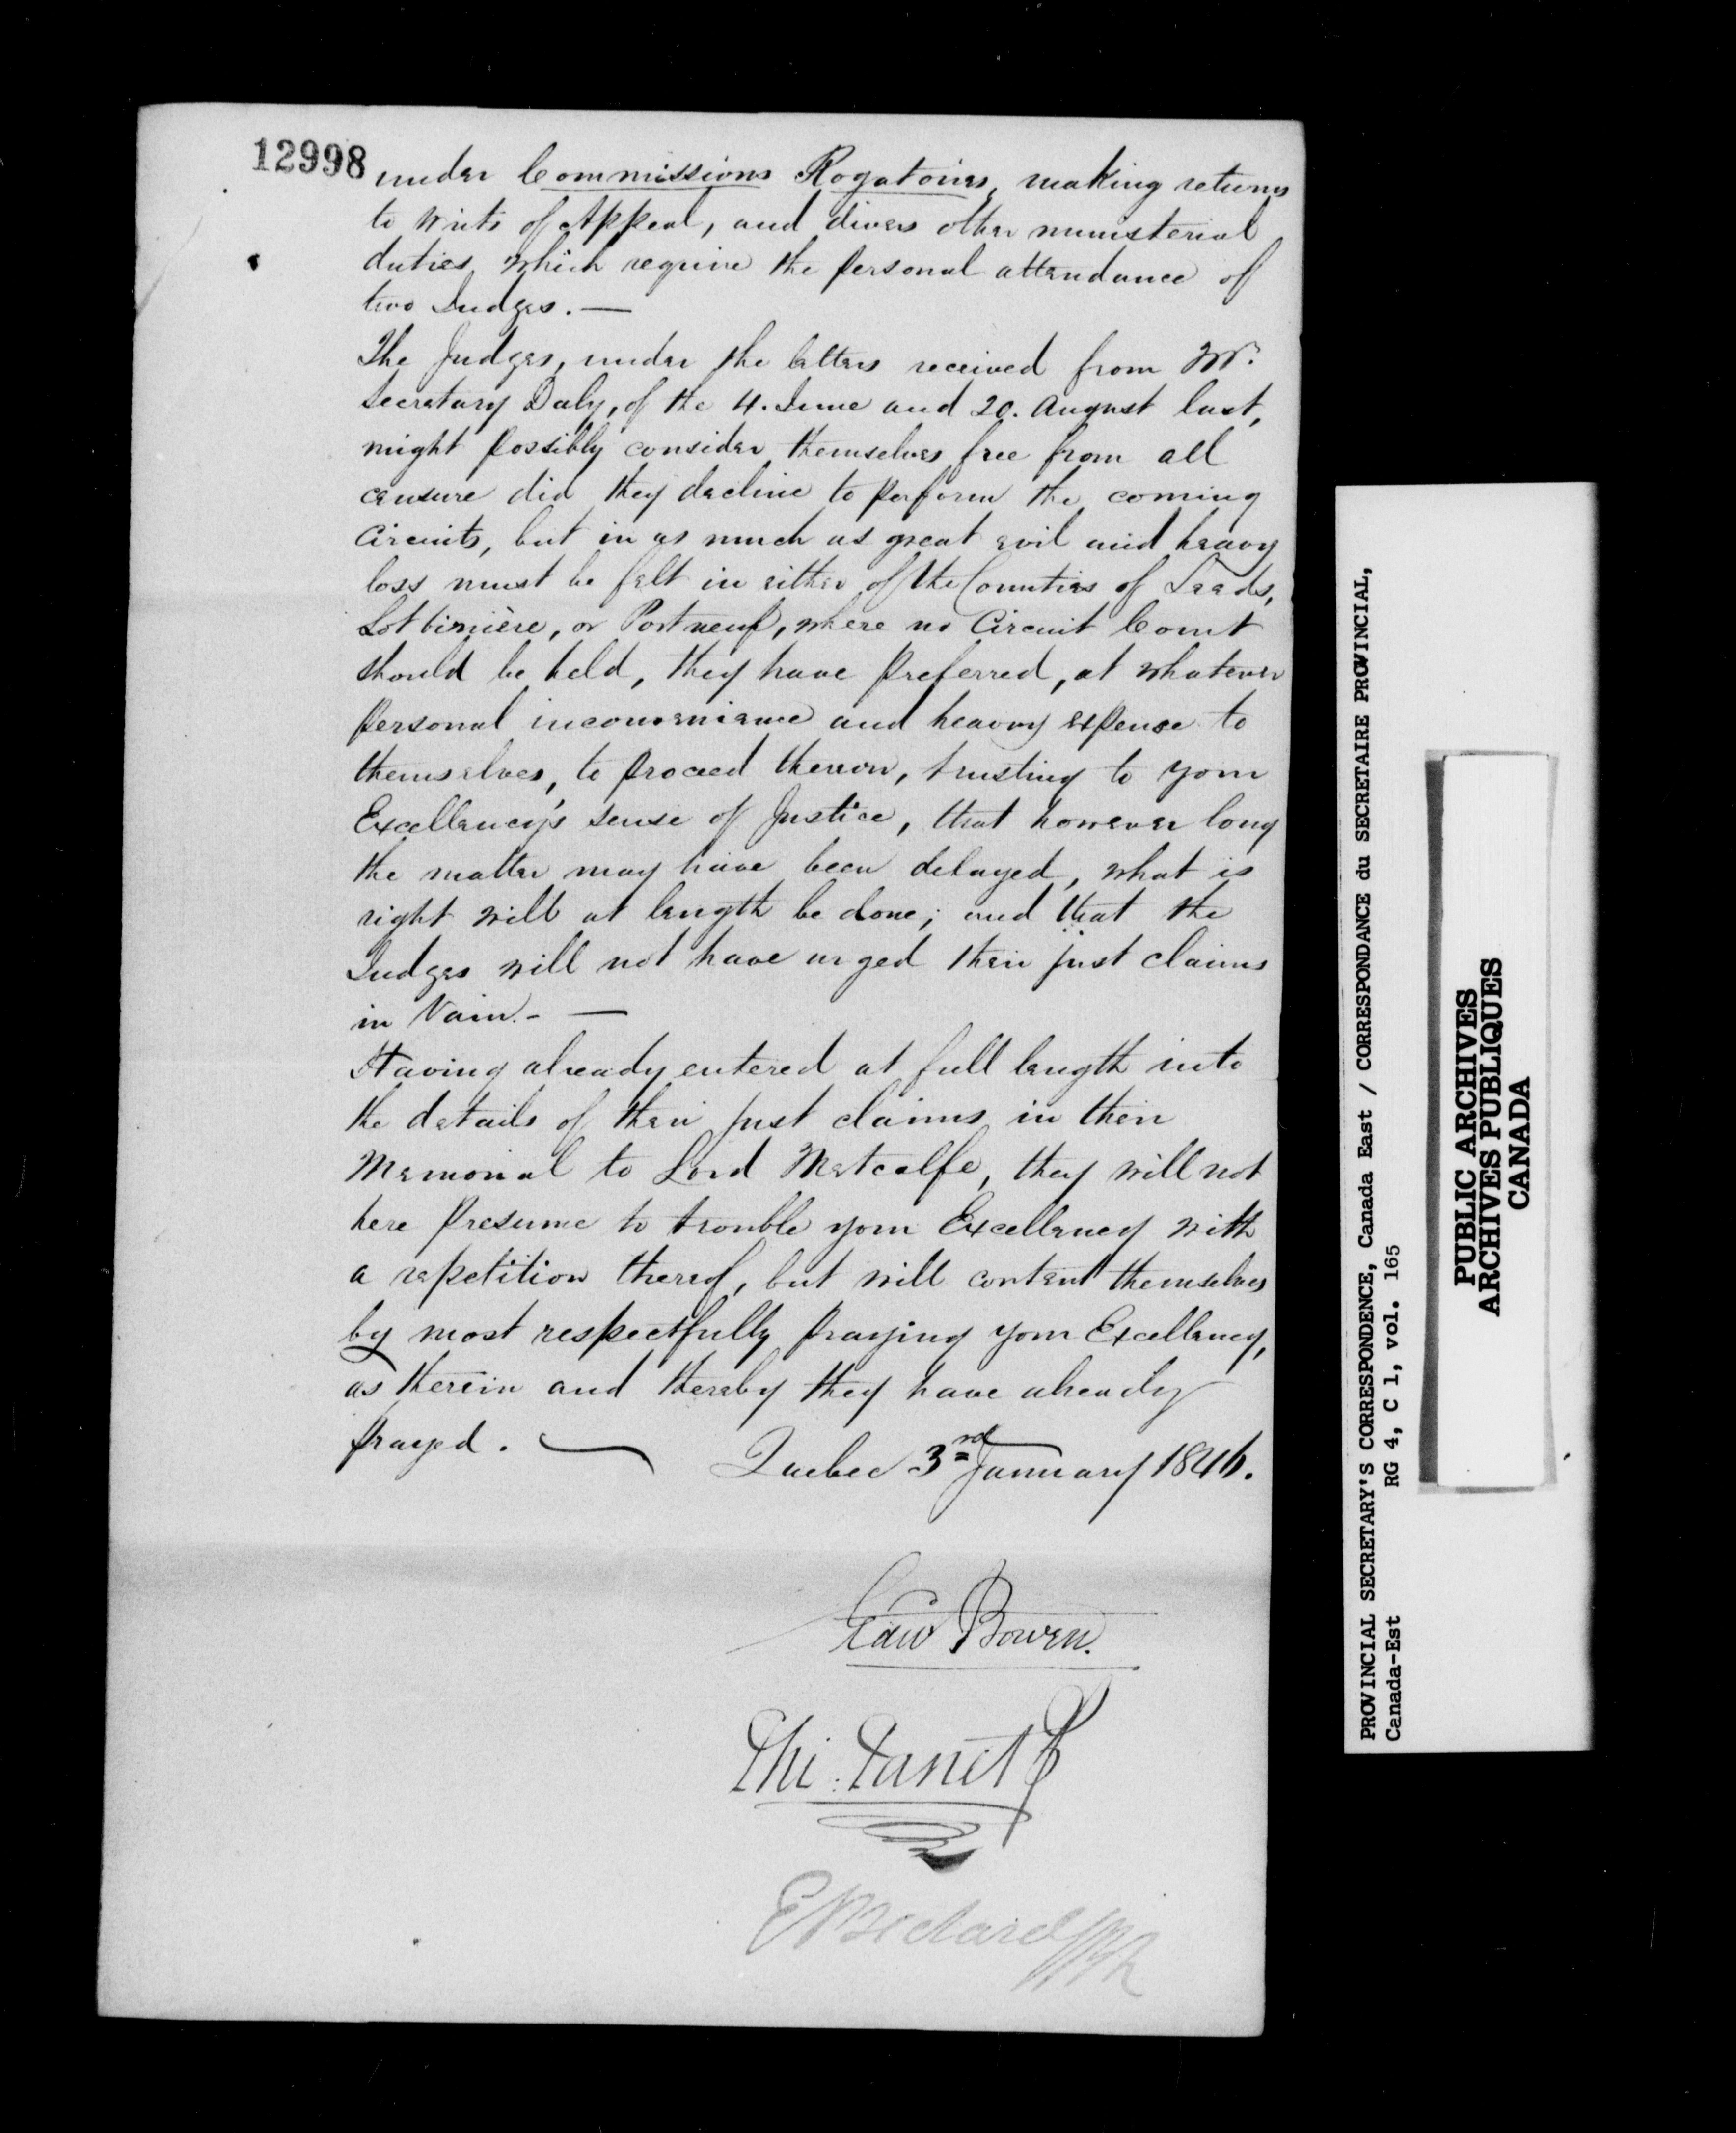 12998
under Commissions Rogatoires, making returns
to writs of Appeal, and divers other ministerial
duties which require the personal attendance of
two Judges. —
The Judges, under the letters received from Mr.
Secretary Daly, of the 4. June and 20. August last,
might possibly consider themselves free from all
censure did they decline to perform the coming
Circuits, but in as much as great evil and heavy
loss must be felt in either of the Counties of Leeds,
Lotbinière, or Portneuf, where no Circuit Court
should be held, they have preferred, at whatever
personal inconvenience and heavy expense to
themselves, to proceed thereon, trusting to your
Excellency's sense of Justice, that however long
the matter may have been delayed, what is
right will at length be done; and that the
Judges will not have urged their just claims
in Vain. - —
Having already entered at full length into
the details of their just claims in their
Memorial to Lord Metcalfe, they will not
here presume to trouble your Excellency with
a repetition thereof, but will content themselves
by most respectfully praying your Excellency,
as therein and thereby they have already
prayed. —
Quebec 3rd January 1846.
Edw Bowen.
Phi. Panet
E Bedard
PROVINCIAL SECRETARY'S CORRESPONDENCE, Canada East / CORRESPONDANCE du SECRETAIRE PROVINCIAL,
Canada-Est RG 4, C 1, vol. 165
PUBLIC ARCHIVES
ARCHIVES PUBLIQUES
CANADA